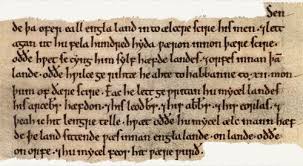 Sen
de þa ofer eall engla land into ælcere scire his men. ⁊ lett
agan ut hu fela hundred hyda wæron innon þære scire.
oððe hwet se cyng him sylf hæfde landes. ⁊ orfes innan þā
lande. oððe hwilce ge rihtæ he ahte to habbanne to .xii. mon
þum of ðære scire. Eac he lett ge writan hu mycel landes
his arceƀ hæfdon. ⁊ his leodƀ. ⁊ his abƀ. ⁊ his eorlas. ⁊
þeah ic hit lengre telle. hwæt oððe hu mycel ælc mann hæf
de þe land sittende wæs innan engla lande. on lande. oððe
on orfe. ⁊ hu mycel feoh hit wære wurð.